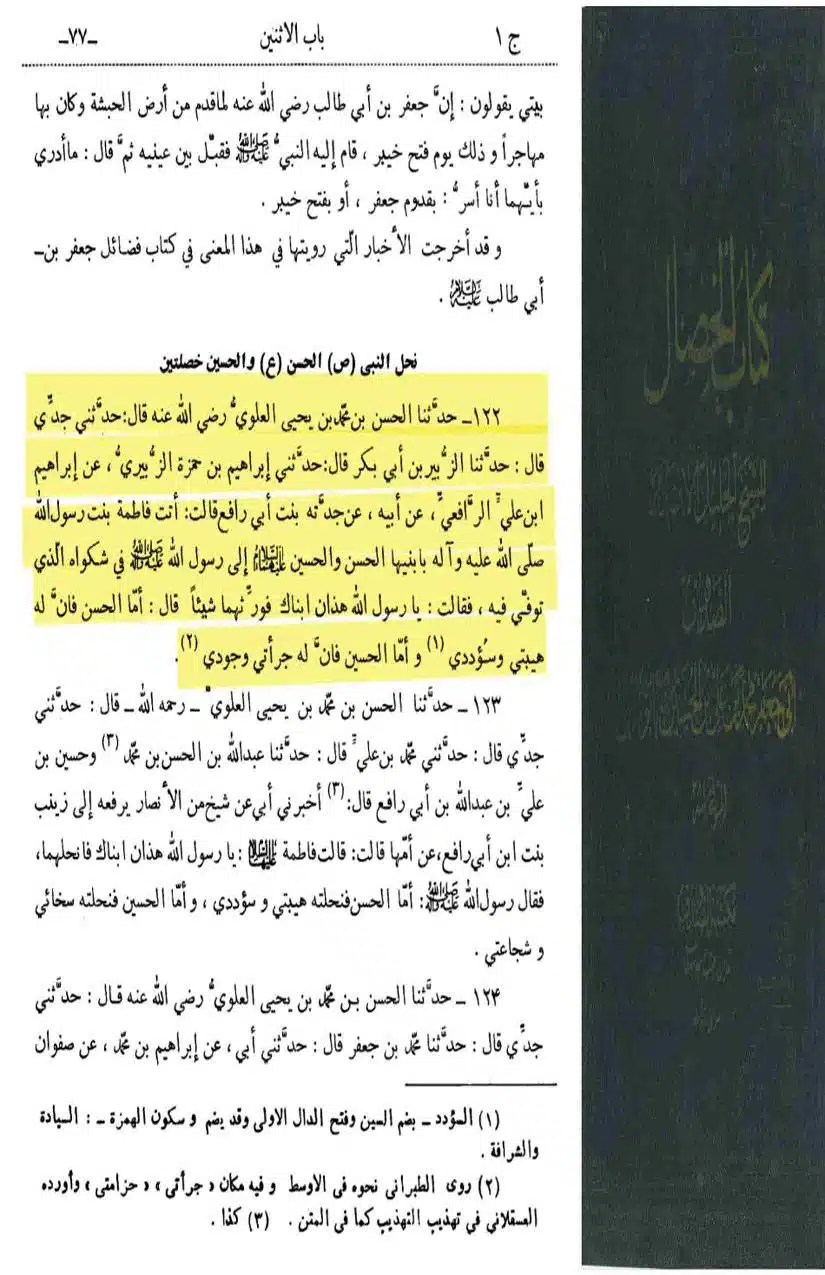 ج ١ باب الاثنين ـ٧٧ـ
بيتي يقولون : إنَّ جعفر بن أبي طالب رضي الله عنه لماقدم من أرض الحبشة وكان بها
مهاجراً و ذلك يوم فتح خيبر ، قام إليه النبيُّ ﷺ فقبّل بين عينيه ثمَّ قال : ماأدري
بأيّهما أنا أسرُّ : بقدوم جعفر ، أو بفتح خيبر .
و قد أخرجت الأخبار الّتي رويتها في هذا المعنى في كتاب فضائل جعفر بن‍ـ
أبي طالب عليه السلام .
نحل النبى (ص) الحسن (ع) والحسين خصلتين
١٢٢ـ حدَّثنا الحسن بن‌محمّدبن يحيى العلويُّ رضي الله عنه قال:حدَّثني جدِّي
قال : حدَّثنا الزُّبيربن أبي بكر قال:حدَّثني إبراهيم بن حمزة الزُّبيريُّ، عن إبراهيم
ابن‌عليٍّ الرَّافعيِّ، عن أبيه ، عن‌جدَّته بنت أبي رافع‌قالت: أتت فاطمة بنت رسول‌الله
صلّى الله عليه وآله بابنيها الحسن والحسين عليهما السلام إلى رسول الله ﷺ في شكواه الّذي
توفّي فيه ، فقالت : يا رسول الله هذان ابناك فورِّثهما شيئاً قال : أمّا الحسن فانَّ له
هيبتي وسُؤددي (١) و أمّا الحسين فانَّ له جرأتي وجودي (٢).
١٢٣ ـ حدَّثنا الحسن بن محمّد بن يحيى العلويُّ ـ رحمه الله ـ قال : حدَّثني
جدِّي قال : حدَّثني محمّد بن‌عليٍّ قال : حدَّثنا عبدالله بن الحسن‌بن محمّد (٣) وحسين بن
عليِّ بن عبدالله بن أبي رافع قال:(٣) أخبرني أبي‌عن شيخ‌من الأنصار يرفعه إلى زينب
بنت ابن أبي‌رافع،عن أمّها قالت: قالت‌فاطمة عليها السلام :يا رسول الله هذان ابناك فانحلهما،
فقال رسول‌الله ﷺ: أمّا الحسن‌فنحلته هيبتي و سؤددي ، و أمّا الحسين فنحلته سخائي
و شجاعتي .
١٢۴ ـ حدَّثنا الحسن بن محمّد بن يحيى العلويُّ رضي الله عنه قال : حدَّثني
جدِّي قال : حدَّثنا محمّد بن جعفر قال : حدَّثني أبي ، عن إبراهيم بن محمّد ، عن صفوان
(١) السؤدد ـ بضم السين وفتح الدال الاولى وقد يضم و سكون الهمزة ـ : السيادة
والشرافة .
(٢) روى الطبرانى نحوه فى الاوسط و فيه مكان « جرأتى » « حزامتى » وأورده
العسقلاني في تهذيب التهذيب كما فى المتن . (٣) كذا .
كتاب الخصال
الصدوق